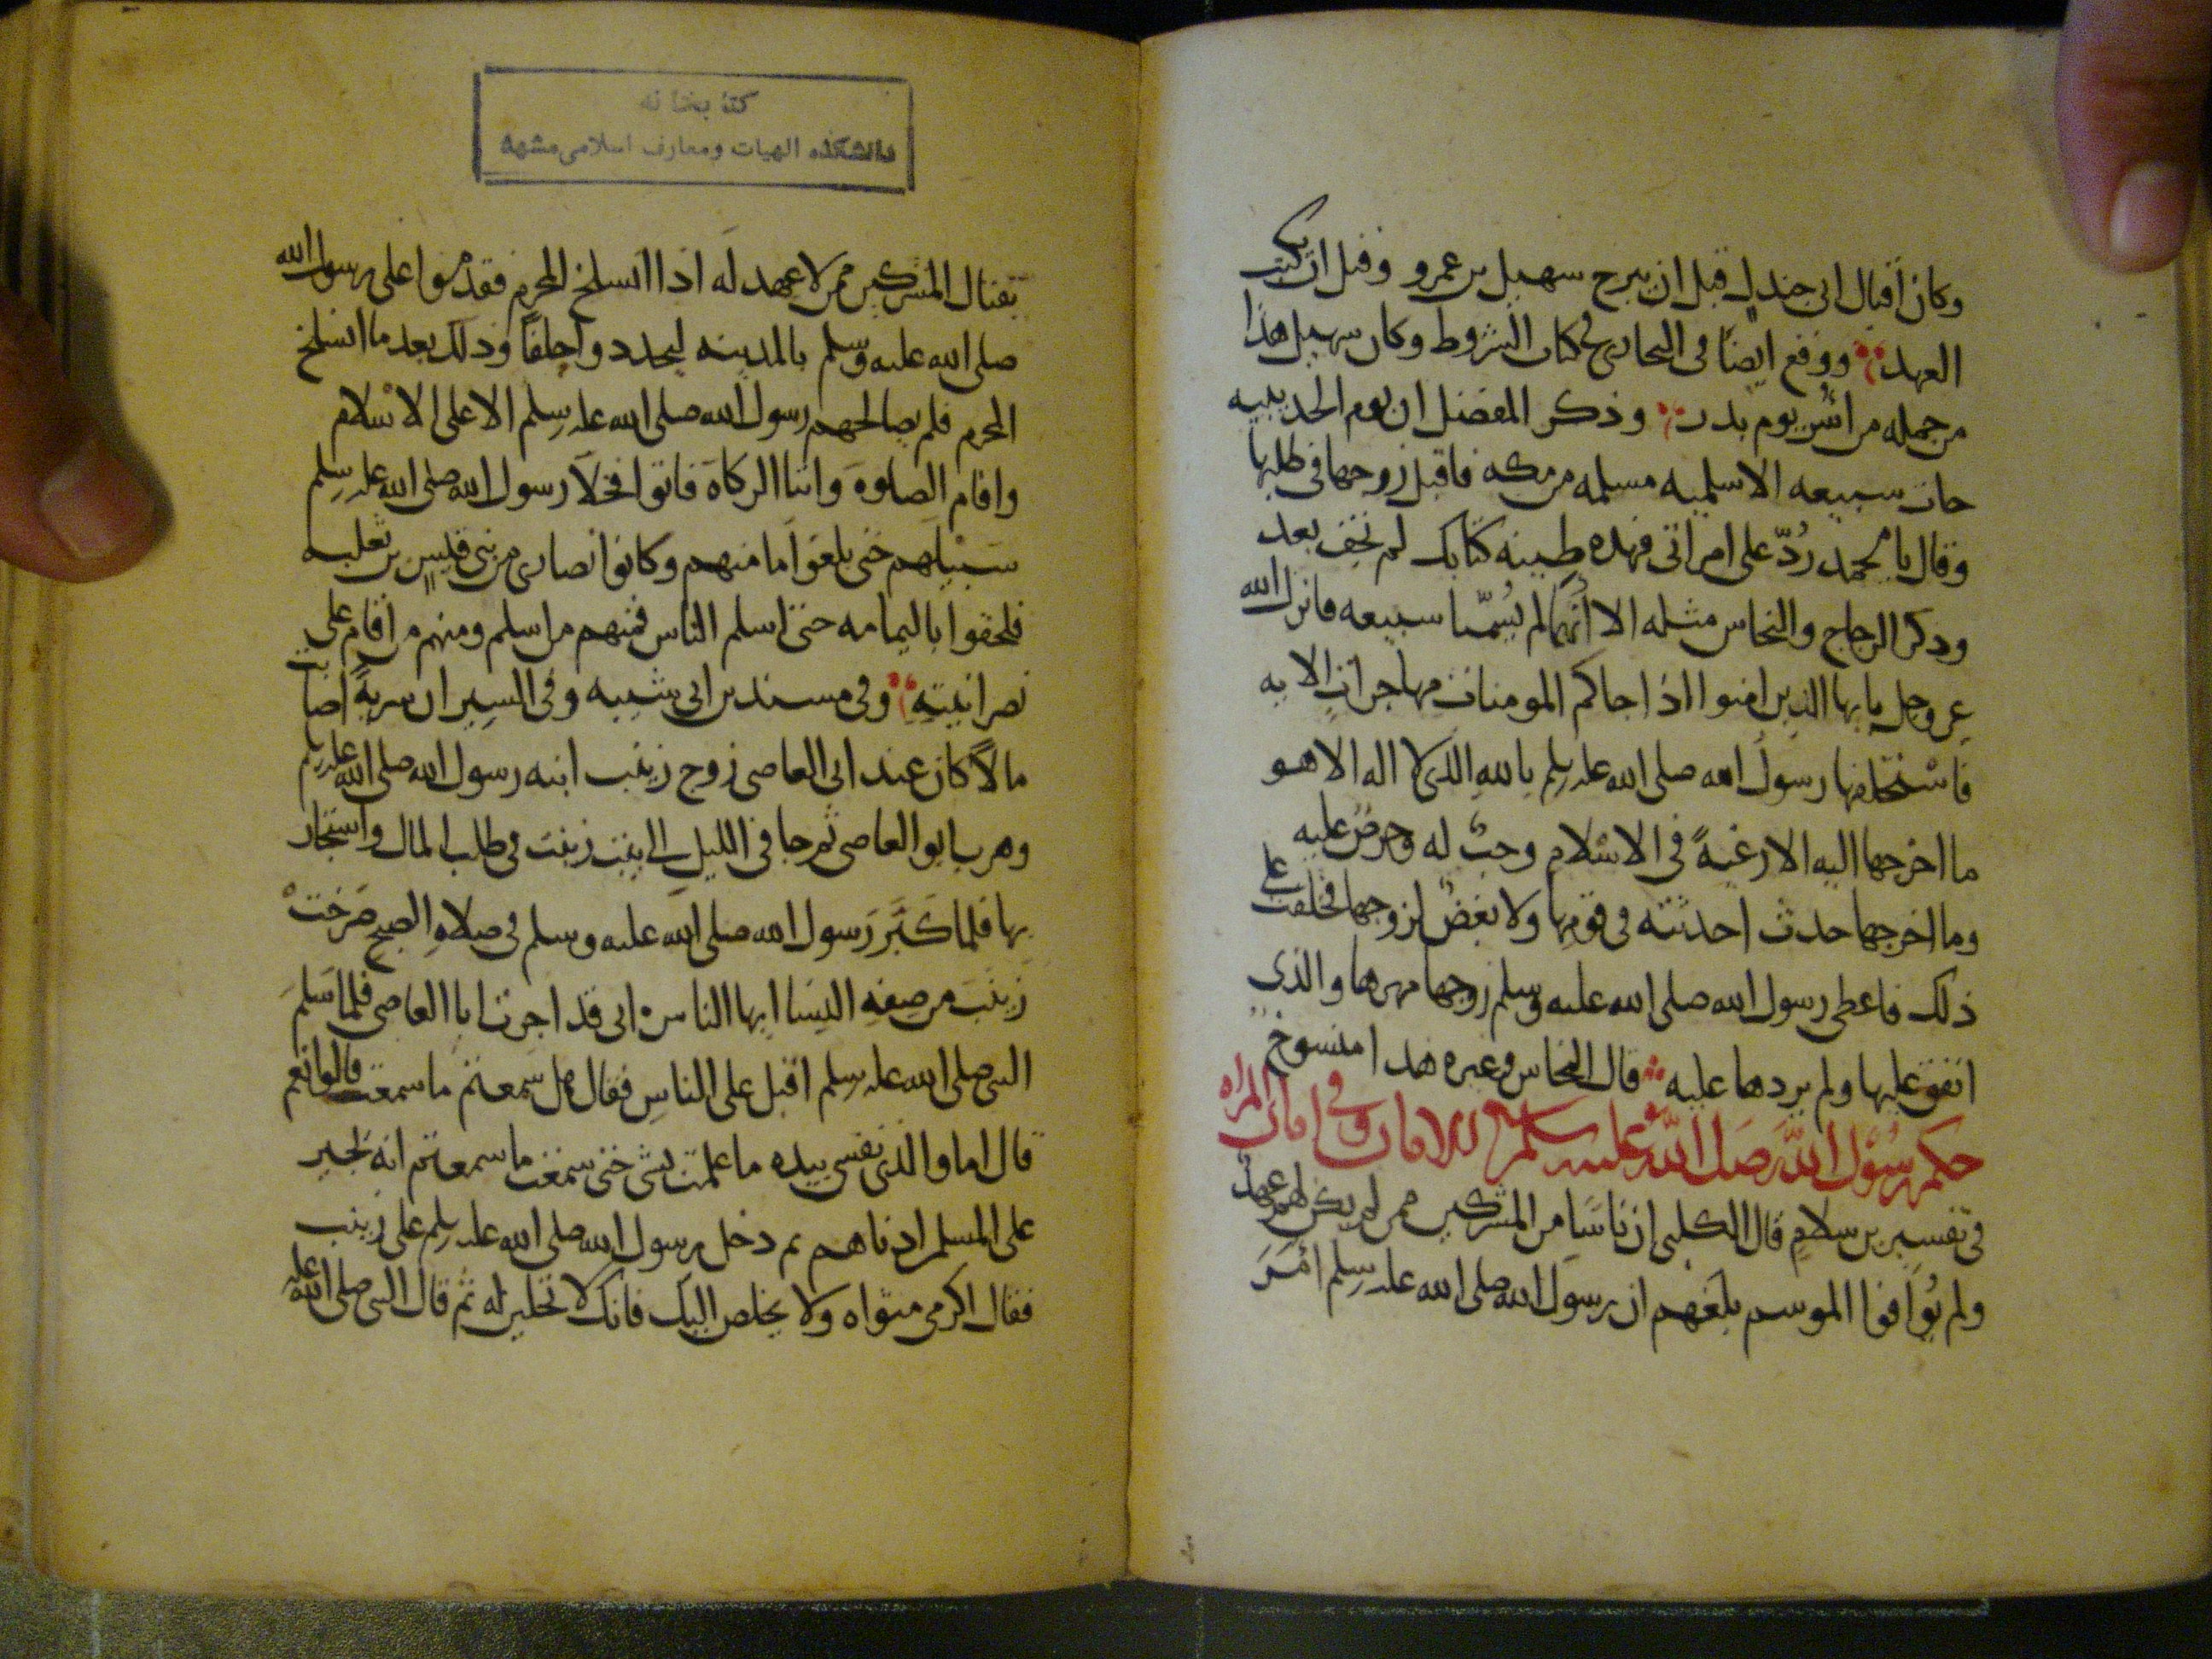 وكان اقبال ابى جندل قبل ان يبرح سهيل بن عمرو وقبل ان يكتب
العهد ووقع ايضا فى البخارى فى كتاب الشروط وكان سهيل هذا
من جمله من اسر يوم بدر وذكر المفضل ان يوم الحديبيه
جات سبيعه الاسلميه مسلمه من مكه فاقبل زوجها فى طلبها
وقال يا محمد رُدّ على امراتى فهذه طينه كتابك لم تجف بعد
وذكر الزجاج والنحاس مثله الا انهما لم يُسمّيا سبيعه فانزل الله
عز وجل يا يها الذين امنوا اذا جاكم المومنات مهاجرات الايه
فاستحلفها رسول الله صلى الله عليه وسلم بالله الذى لا اله الا هو
ما اخرجها اليه الا رغبةً فى الاسلام وحبٌ له وحرصٌ عليه
وما اخرجها حدث احدثته فى قومها ولا بغضٌ لزوجها فحلفت على
ذلك فاعطى رسول الله صلى الله عليه وسلم زوجها مهرها والذى
انفق عليها ولم يردها عليه قال النحاس وغيره هذا منسوخ
حكم رسول الله صلى الله عليه وسلم فى الامان وفى امان المراه
فى تفسير بن سلام قال الكلبى إن ناسا من المشركين ممن لم يكن لهم عهدٌ
ولم يُوافوا الموسم بلغهم ان رسول الله صلى الله عليه وسلم امَرَ
كتابخانه
دانشكده الهيات ومعارف اسلامى مشهد
بقتال المشركين ممن لا عهد له اذا انسلخ المحرم فقدموا على رسول الله
صلى الله عليه وسلم بالمدينه ليجددوا حلفا وذلك بعد ما انسلخ
المحرم فلم يصالحهم رسول الله صلى الله عليه وسلم الا على الاسلام
واقام الصلوة وايتا الزكاة فابوا فخلا رسول الله صلى الله عليه وسلم
سبيلهم حتى بلغوا مامنهم وكانوا نصارى من بنى قيس بن ثعلبه
فلحقوا باليمامه حتى اسلم الناس فمنهم من اسلم ومنهم من اقام على
نصرانيته وفى مسند بن ابى شيبه وفى السير ان سريةً اصابت
مالاً كان عند ابى العاصى زوج زينب ابنه رسول الله صلى الله عليه وسلم
وهرب ابو العاصى ثم جا فى الليل الى بيت زينب فى طلب المال واستجار
بها فلما كَبَّرَ رسول الله صلى الله عليه وسلم فى صلاه الصبح صَرَختْ
زينب من صفه النسا ايها الناس انى قد اجرت ابا العاصى فلما سَلم
النبى صلى الله عليه وسلم اقبل على الناس فقال هل سمعتم ما سمعت قالوا نعم
قال اما والذى نفسى بيده ما علمت بشى حتى سمعت ما سمعتم انه يجير
على المسلم ادناهم ثم دخل رسول الله صلى الله عليه وسلم على زينب
فقال اكرمى مثواه ولا يخلص اليك فانك لا تحلين له ثم قال النبى صلى الله عليه